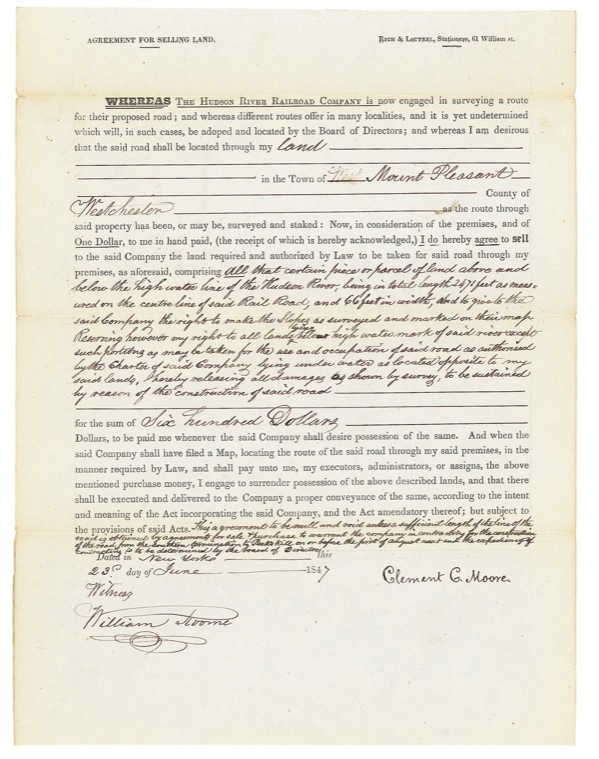 AGREEMENT FOR SELLING LAND.
RICH & LOUTREL, Stationers, 61 William st.
WHEREAS THE HUDSON RIVER RAILROAD COMPANY is now engaged in surveying a route
for their proposed road; and whereas different routes offer in many localities, and it is yet undetermined
which will, in such cases, be adopted and located by the Board of Directors; and whereas I am desirous
that the said road shall be located through my land
in the Town of West Mount Pleasant
County of
Westchester as the route through
said property has been, or may be, surveyed and staked: Now, in consideration of the premises, and of
One Dollar, to me in hand paid, (the receipt of which is hereby acknowledged,) I do hereby agree to sell
to the said Company the land required and authorized by Law to be taken for said road through my
premises, as aforesaid, comprising All that certain piece or parcel of land above and
below the high water line of the Hudson River, being in total length 2471 feet as meas-
ured on the centre line of said Rail Road, and 66 feet in width, And to give to the
said Company the right to make the Slopes as surveyed and marked on their map
Reserving however my right to all lands lying below high water mark of said river except
such portions as may be taken for the use and occupation of said road as authorised
by the Charter of said Company lying under water as located opposite to my
said lands, hereby releasing all damages as shown by survey, to be sustained
by reason of the construction of said road
for the sum of Six hundred Dollars
Dollars, to be paid me whenever the said Company shall desire possession of the same. And when the
said Company shall have filed a Map, locating the route of the said road through my said premises, in the
manner required by Law, and shall pay unto me, my executors, administrators, or assigns, the above
mentioned purchase money, I engage to surrender possession of the above described lands, and that there
shall be executed and delivered to the Company a proper conveyance of the same, according to the intent
and meaning of the Act incorporating the said Company, and the Act amendatory thereof; but subject to
the provisions of said Acts. This agreement to be null and void unless a sufficient length of the line of the
road is obtained by agreements for sale & purchase to warrant the company in contracting for the construction
of the road from the southern termination to Peekskill on or before the first of August next and the expediency of
contracting is to be determined by the board of Directors
Dated in New York this
23d day of June 1847
Clement C. Moore.
Witness
William